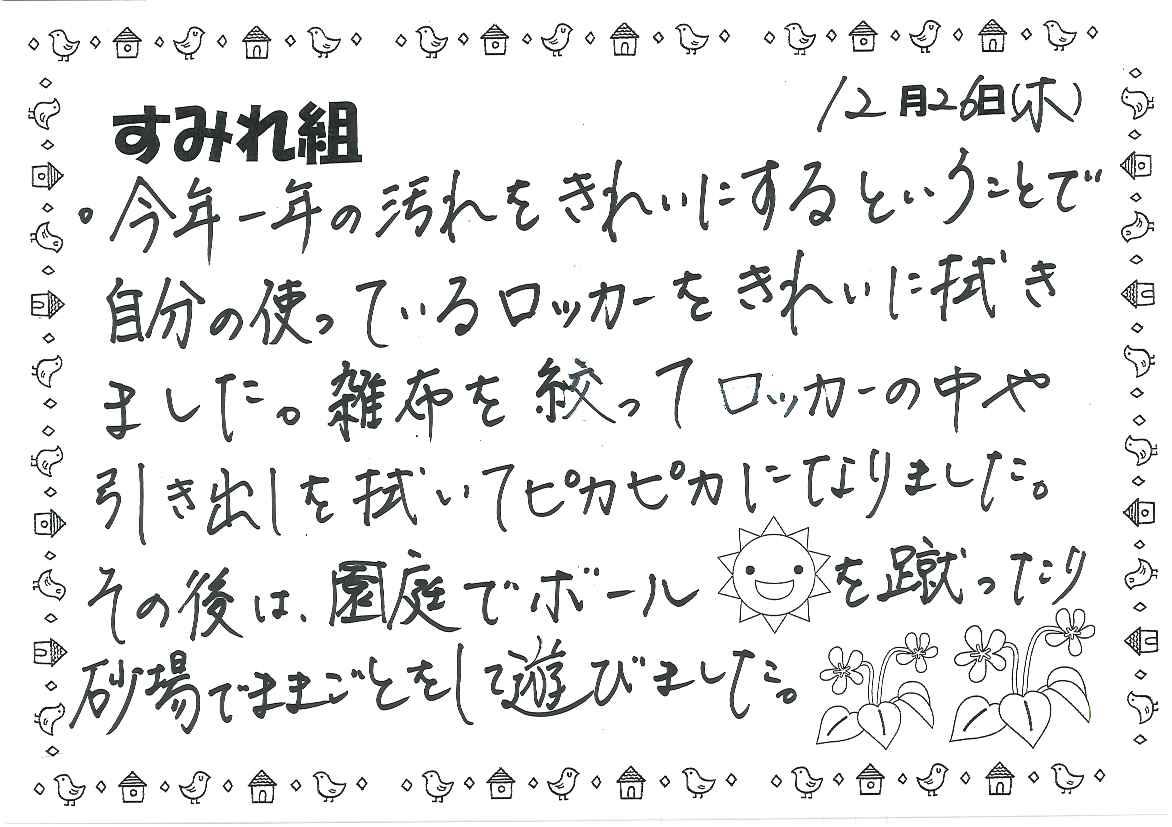 すみれ組
12月26日(木)
。今年一年の汚れをきれいにするということで
自分の使っているロッカーをきれいに拭き
ました。雑布を絞ってロッカーの中や
引き出しを拭いてピカピカになりました。
その後は、園庭でボールを蹴ったり
砂場でままごとをして遊びました。